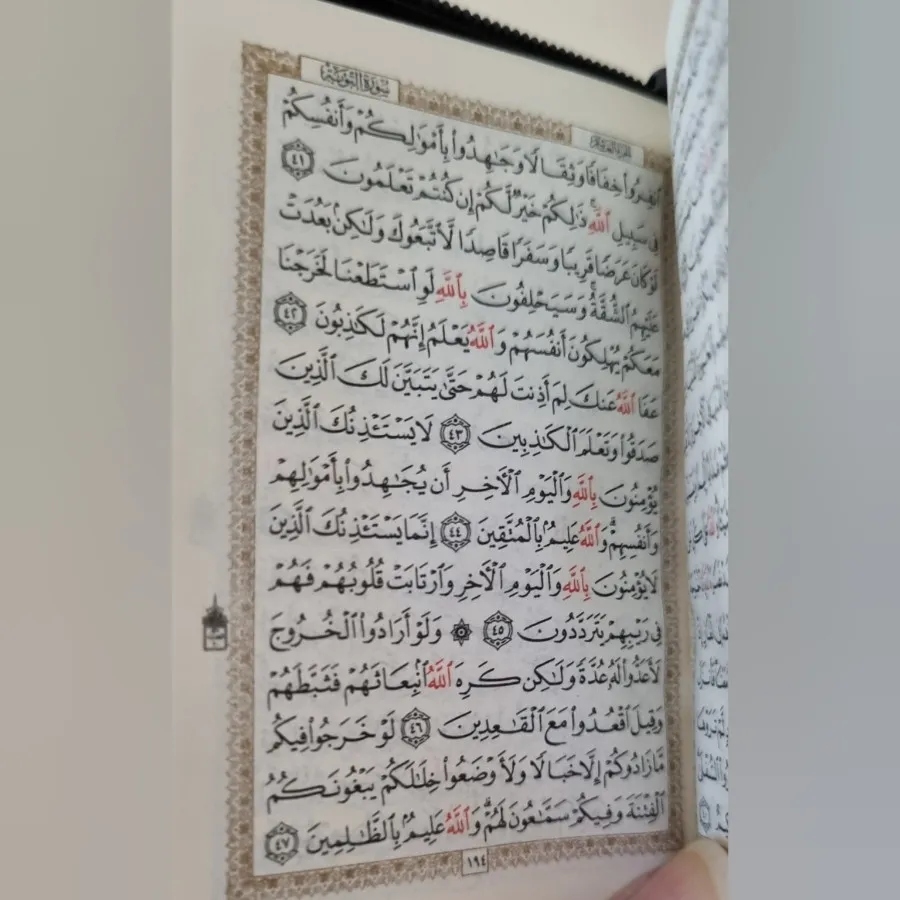 سُورَةُ التَّوْبَةِ
الجزء العاشر
ٱنفِرُوا۟ خِفَافًا وَثِقَالًا وَجَـٰهِدُوا۟ بِأَمْوَٰلِكُمْ وَأَنفُسِكُمْ
فِى سَبِيلِ ٱللَّهِ ۚ ذَٰلِكُمْ خَيْرٌ لَّكُمْ إِن كُنتُمْ تَعْلَمُونَ ٤١
لَوْ كَانَ عَرَضًا قَرِيبًا وَسَفَرًا قَاصِدًا لَّٱتَّبَعُوكَ وَلَـٰكِنۢ بَعُدَتْ
عَلَيْهِمُ ٱلشُّقَّةُ ۚ وَسَيَحْلِفُونَ بِٱللَّهِ لَوِ ٱسْتَطَعْنَا لَخَرَجْنَا
مَعَكُمْ يُهْلِكُونَ أَنفُسَهُمْ وَٱللَّهُ يَعْلَمُ إِنَّهُمْ لَكَـٰذِبُونَ ٤٢
عَفَا ٱللَّهُ عَنكَ لِمَ أَذِنتَ لَهُمْ حَتَّىٰ يَتَبَيَّنَ لَكَ ٱلَّذِينَ
صَدَقُوا۟ وَتَعْلَمَ ٱلْكَـٰذِبِينَ ٤٣ لَا يَسْتَـْٔذِنُكَ ٱلَّذِينَ
يُؤْمِنُونَ بِٱللَّهِ وَٱلْيَوْمِ ٱلْـَٔاخِرِ أَن يُجَـٰهِدُوا۟ بِأَمْوَٰلِهِمْ
وَأَنفُسِهِمْ ۗ وَٱللَّهُ عَلِيمٌۢ بِٱلْمُتَّقِينَ ٤٤ إِنَّمَا يَسْتَـْٔذِنُكَ ٱلَّذِينَ
لَا يُؤْمِنُونَ بِٱللَّهِ وَٱلْيَوْمِ ٱلْـَٔاخِرِ وَٱرْتَابَتْ قُلُوبُهُمْ فَهُمْ
فِى رَيْبِهِمْ يَتَرَدَّدُونَ ٤٥ ۞ وَلَوْ أَرَادُوا۟ ٱلْخُرُوجَ
لَأَعَدُّوا۟ لَهُۥ عُدَّةً وَلَـٰكِن كَرِهَ ٱللَّهُ ٱنۢبِعَاثَهُمْ فَثَبَّطَهُمْ
وَقِيلَ ٱقْعُدُوا۟ مَعَ ٱلْقَـٰعِدِينَ ٤٦ لَوْ خَرَجُوا۟ فِيكُم
مَّا زَادُوكُمْ إِلَّا خَبَالًا وَلَأَوْضَعُوا۟ خِلَـٰلَكُمْ يَبْغُونَكُمُ
ٱلْفِتْنَةَ وَفِيكُمْ سَمَّـٰعُونَ لَهُمْ ۗ وَٱللَّهُ عَلِيمٌۢ بِٱلظَّـٰلِمِينَ ٤٧
١٩٤